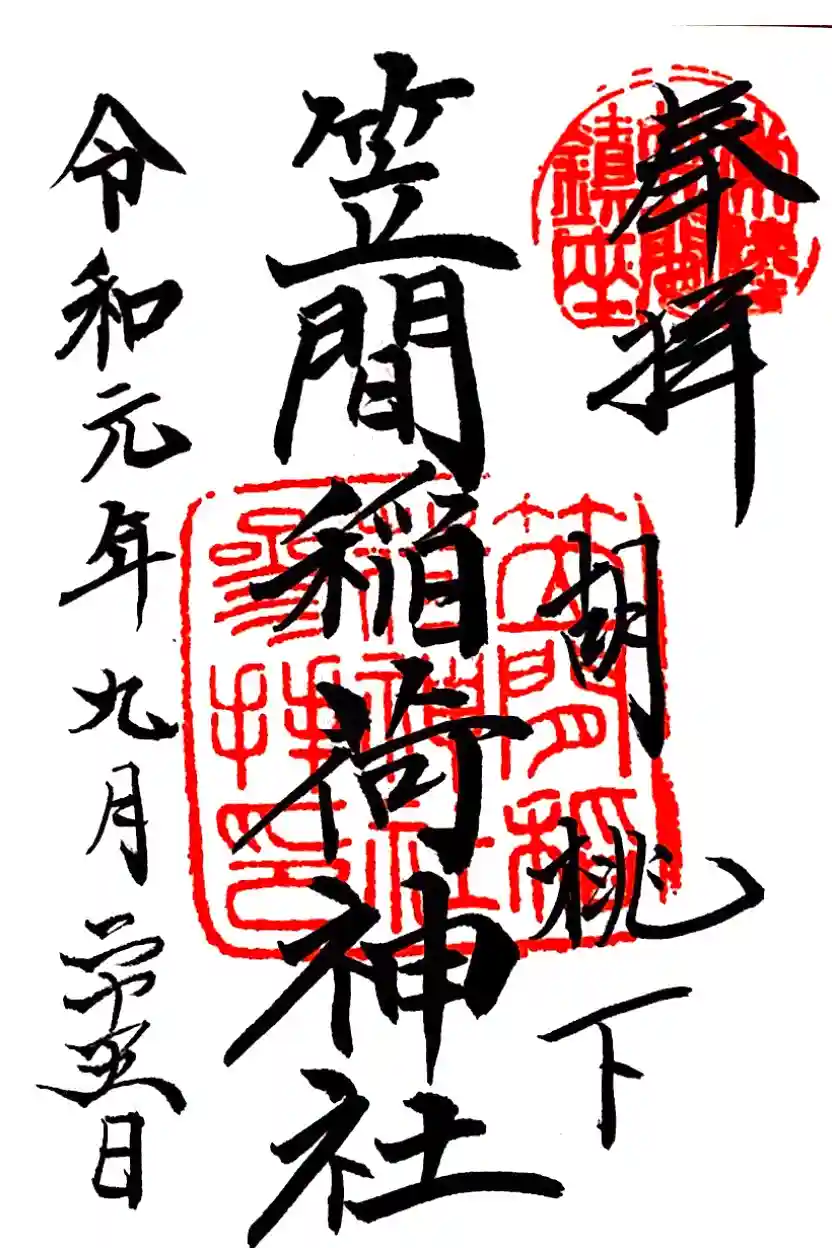 奉拝
胡桃下
笠間稲荷神社
令和元年九月二十五日
常陸
笠間
鎮座
笠間稲
荷神社
参拝印